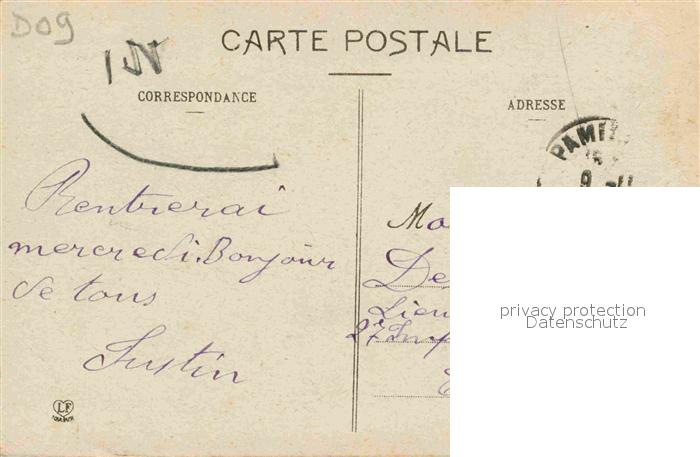 D09
CARTE POSTALE
CORRESPONDANCE
ADRESSE
PAMI
9
Rentrerai
mercredi. Bonjour
de tous
Justin
LF
Mo
De
Lieu
27
privacy protection
Datenschutz